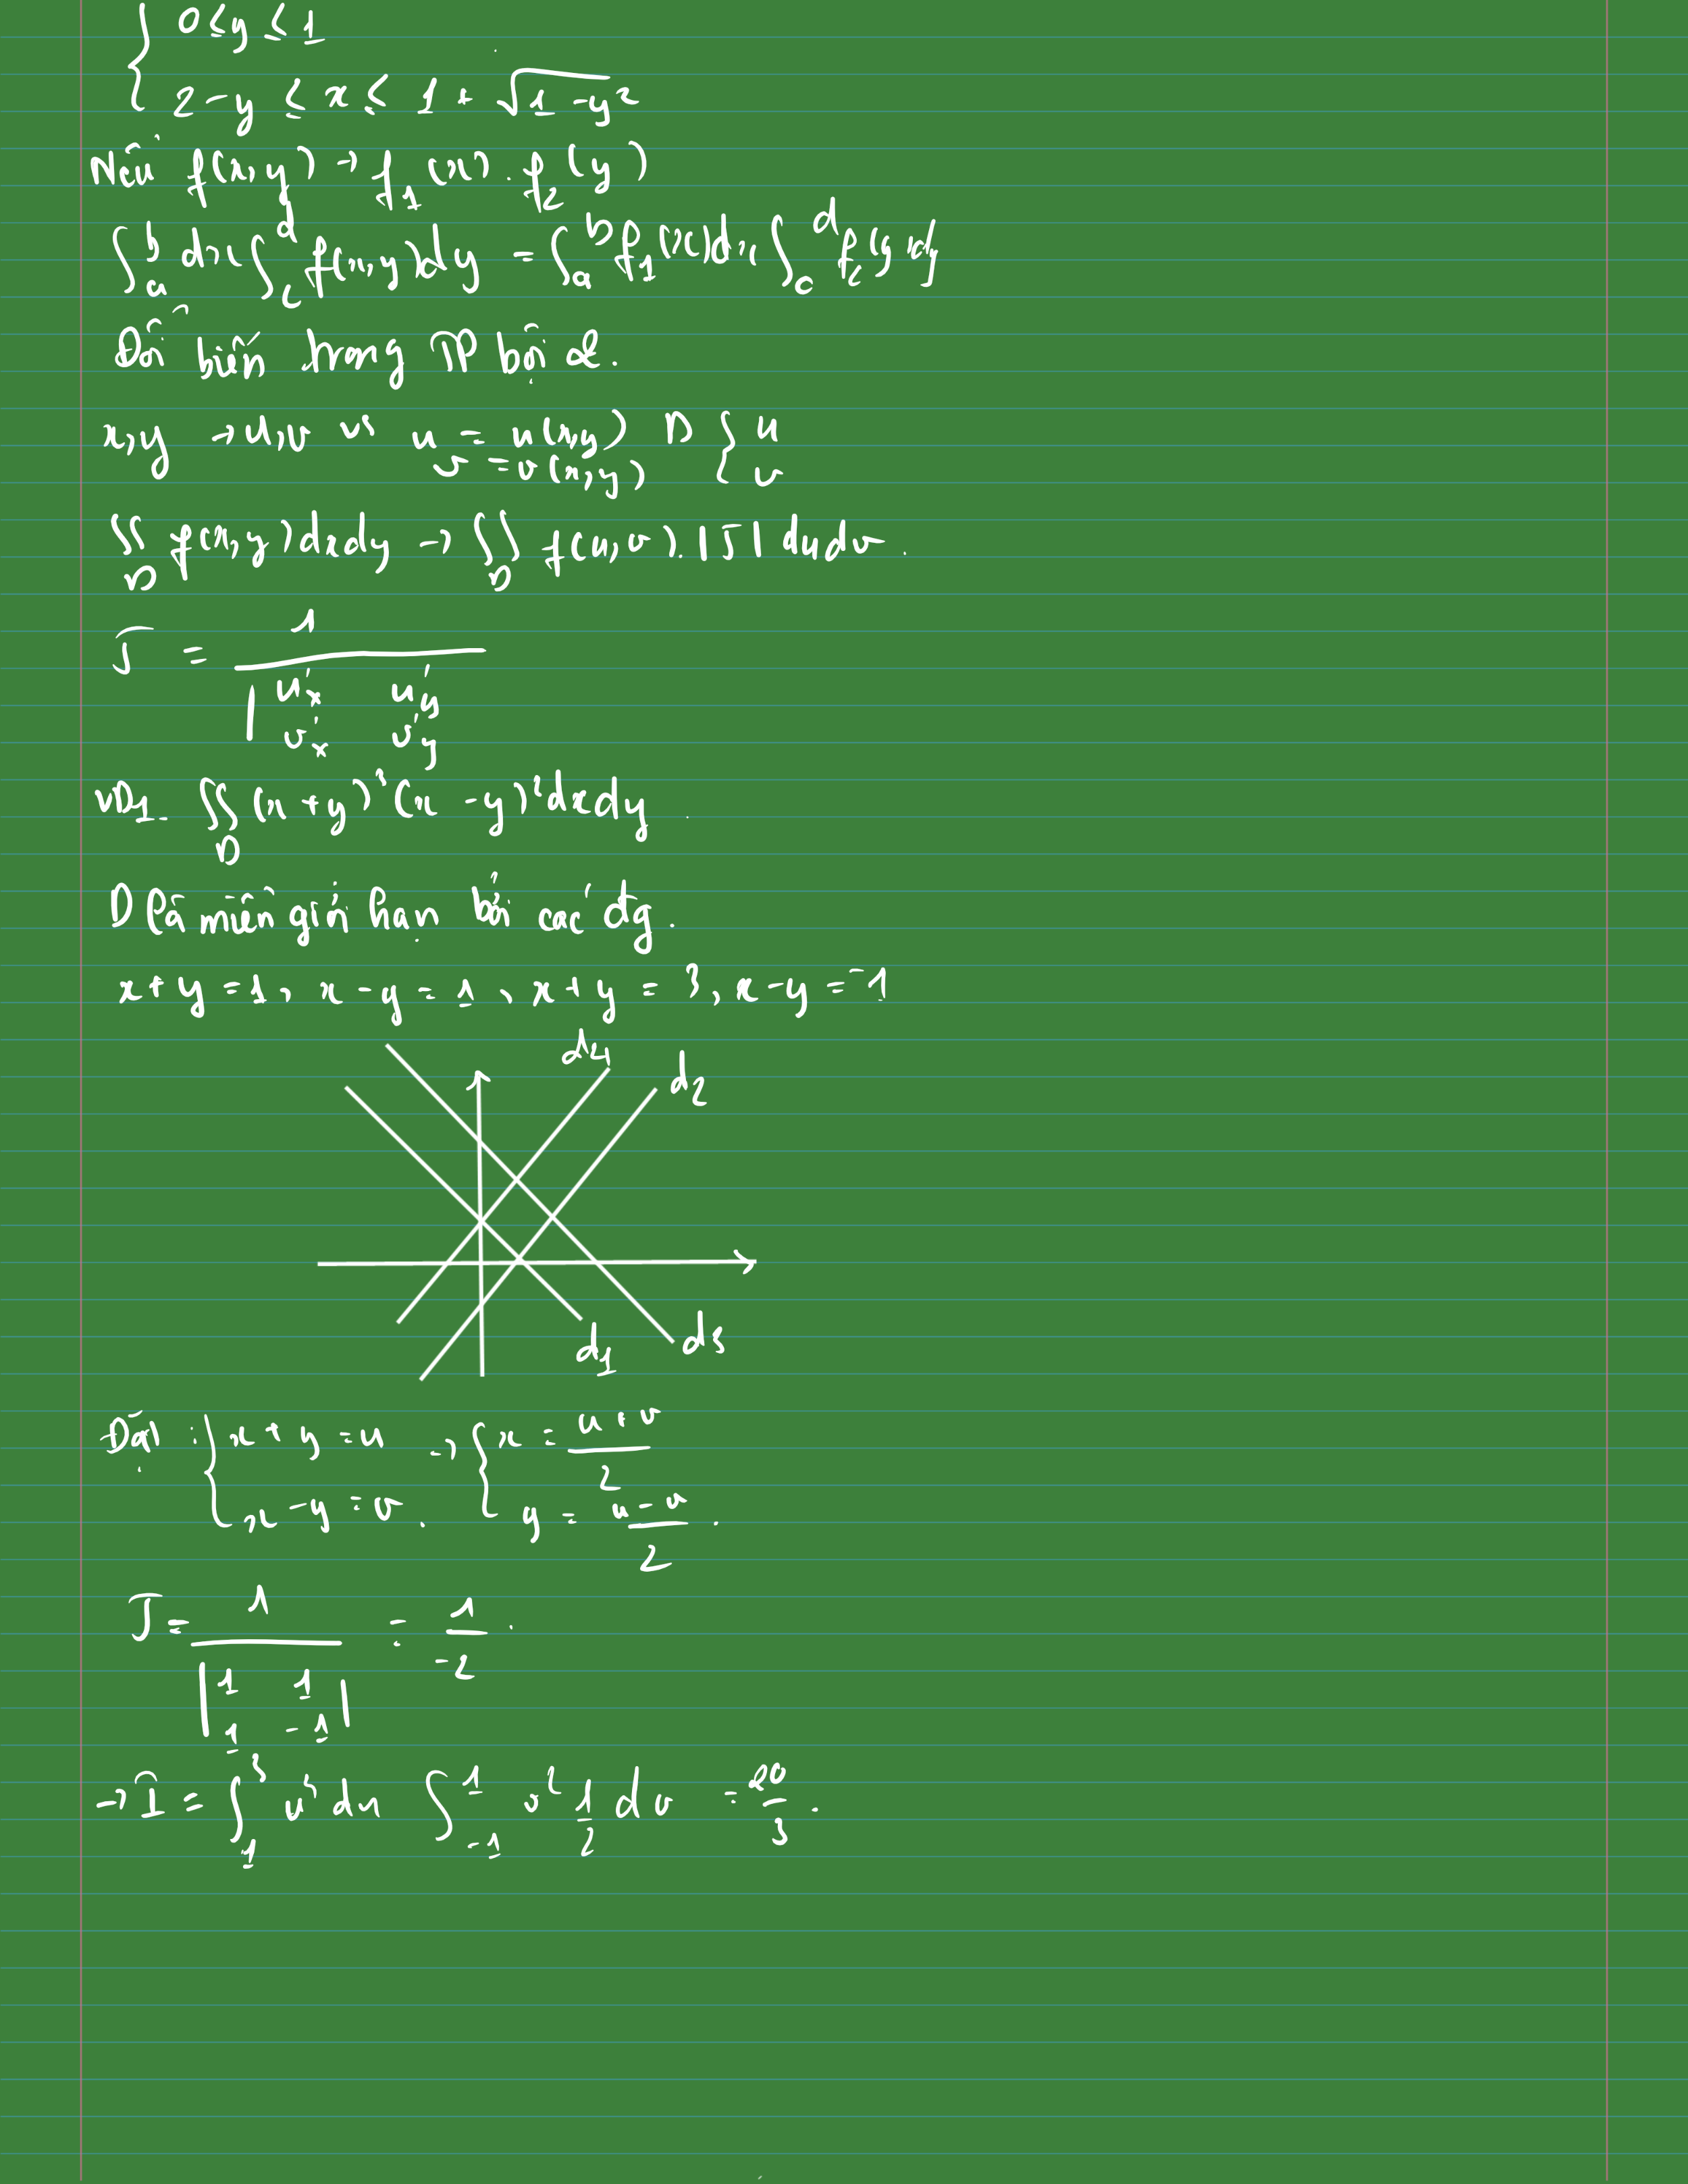 { 0 ≤ y ≤ 1
2 - y ≤ x ≤ 1 + √(1 - y²)
Nếu f(x,y) = f₁(x) . f₂(y)
∫ₐᵇ dx ∫_c^d f(x,y)dy = ∫ₐᵇ f₁(x)dx ∫_c^d f₂(y)dy
Đổi biến trong TP bội 2.
x,y → u,v vs u = u(x,y) D { u
v = v(x,y) v
∬_D f(x,y)dxdy → ∬_D f(u,v).|J|dudv.
J = 1
| u'x u'y
v'x v'y
VD1. ∬_D (x+y)³(x-y)²dxdy.
D là miền giới hạn bởi các đg.
x+y=1, x-y=1, x+y=3, x-y=-1
d₄ d₂
d₁ d₃
Đặt: { x+y=u → { x = u+v / 2
x-y=v. y = u-v / 2.
J = 1 / = 1 / -2.
| 1 1
1 -1 |
→ I = ∫₁³ u³ du ∫₋₁¹ v² 1/2 dv = 20/3.